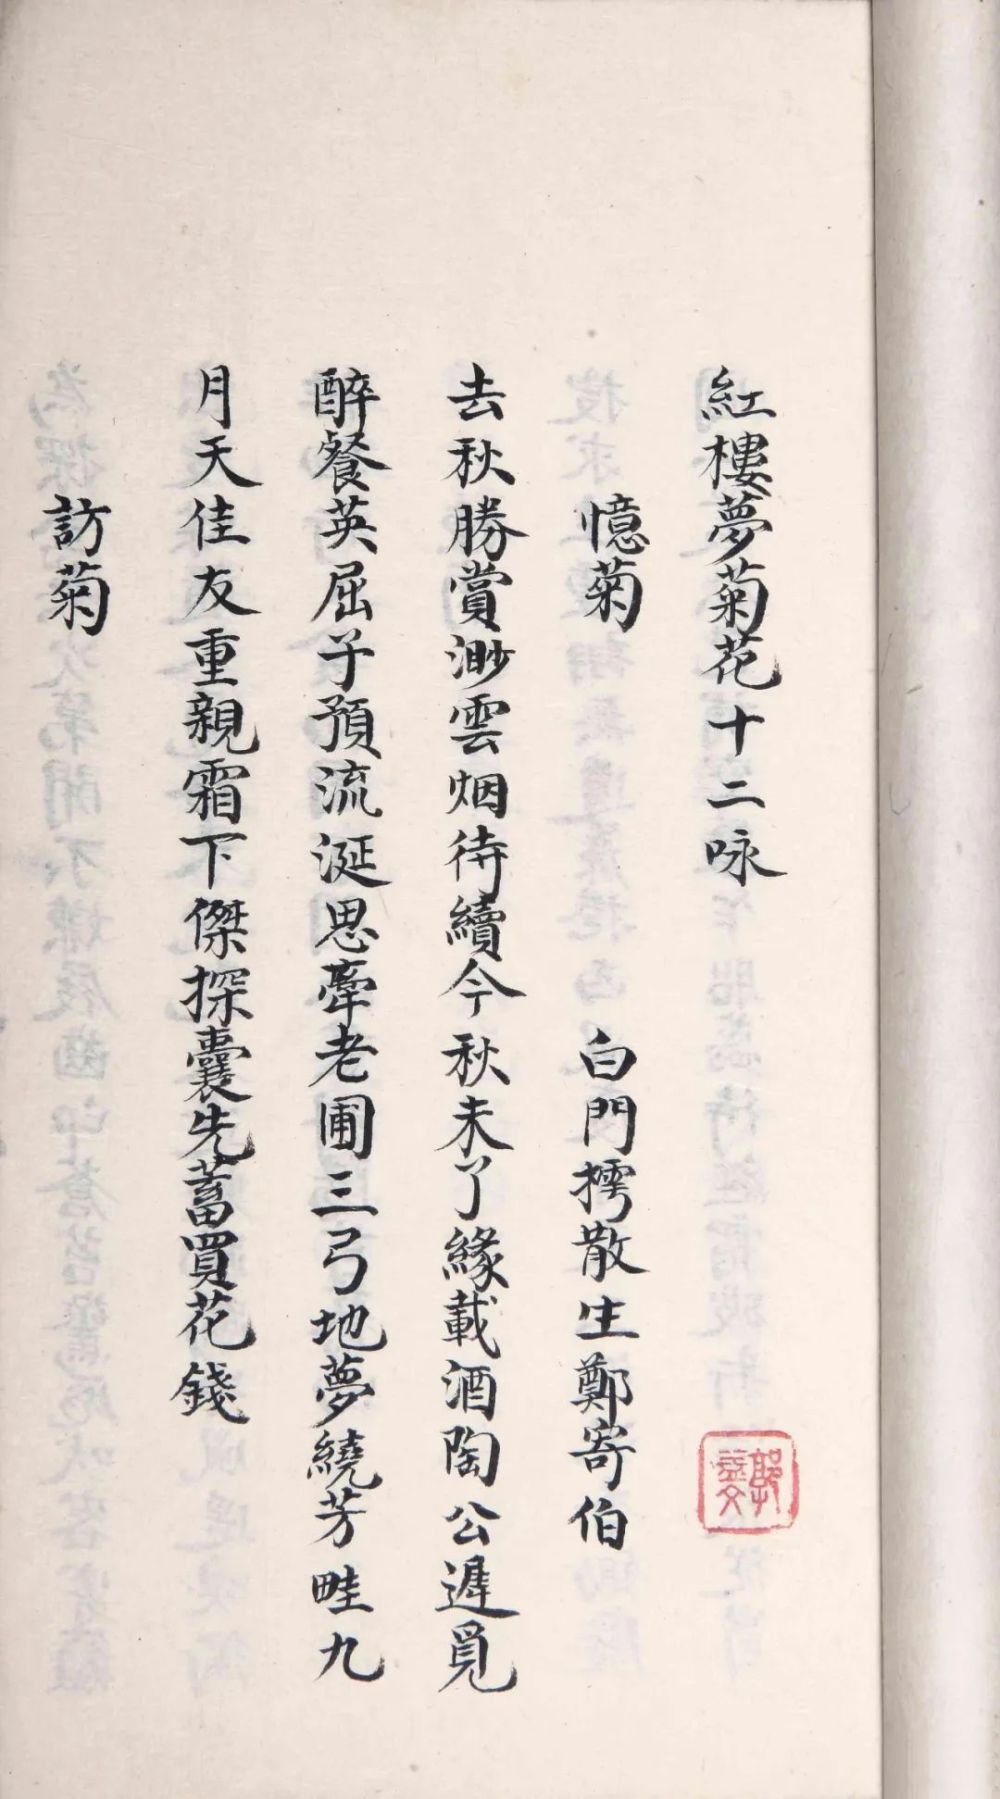 紅樓夢菊花十二咏
憶菊
白門摴散生鄭寄伯
去秋勝賞渺雲烟待續今秋未了緣載酒陶公遲覓
醉餐英屈子預流涎思牽老圃三弓地夢繞芳畦九
月天佳友重親霜下傑探囊先蓄買花錢
訪菊